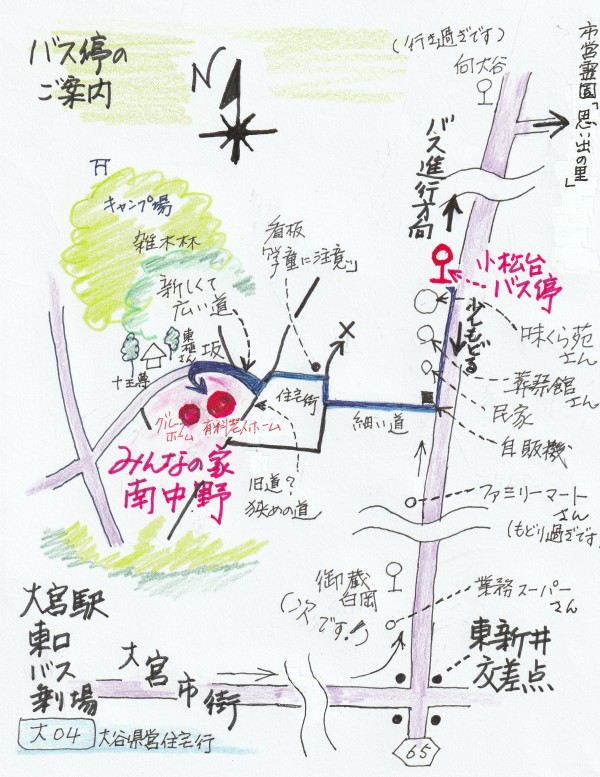 バス停の
ご案内
N
(行き過ぎです)
向大谷
市営霊園「思い出の里」
バス進行方向
キャンプ場
雑木林
看板
「学童に注意」
新しくて
広い道
小松台
バス停
少しもどる
味くら苑
さん
葬祭館
さん
民家
自販機
坂
十王尊
住宅街
細い道
グループ
ホーム
有料老人ホーム
みんなの家
南中野
旧道?
狭めの道
ファミリーマート
さん
(もどり過ぎです
御蔵
白岡
(次です!)
業務スーパー
さん
大宮駅
東口
バス
乗場
大宮市街
東新井
交差点
大04
大谷県営住宅行
65